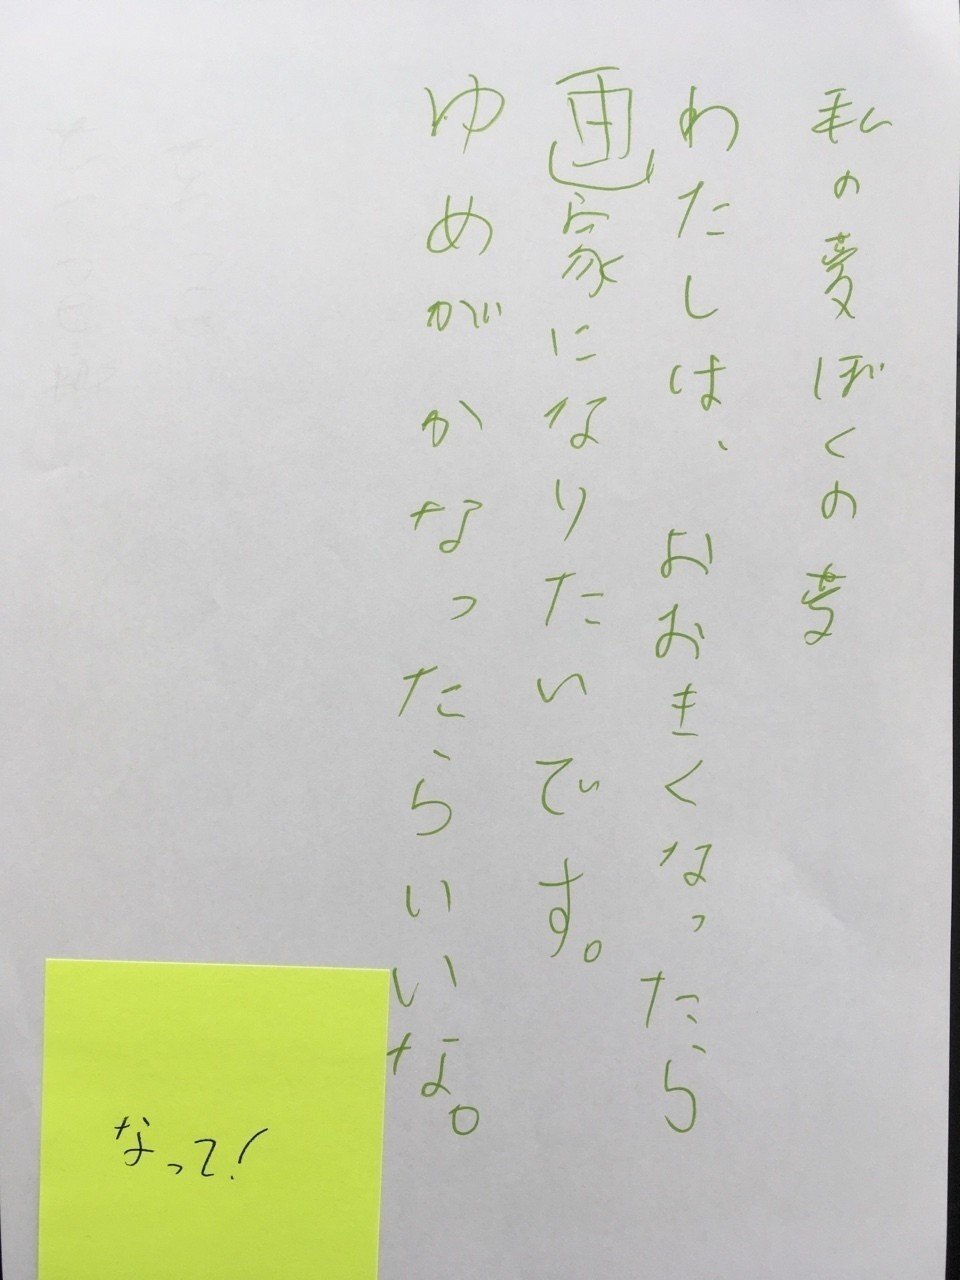 私の夢ぼくの夢
わたしは、おおきくなったら
画家になりたいです。
ゆめがかなったらいいな。
なって!